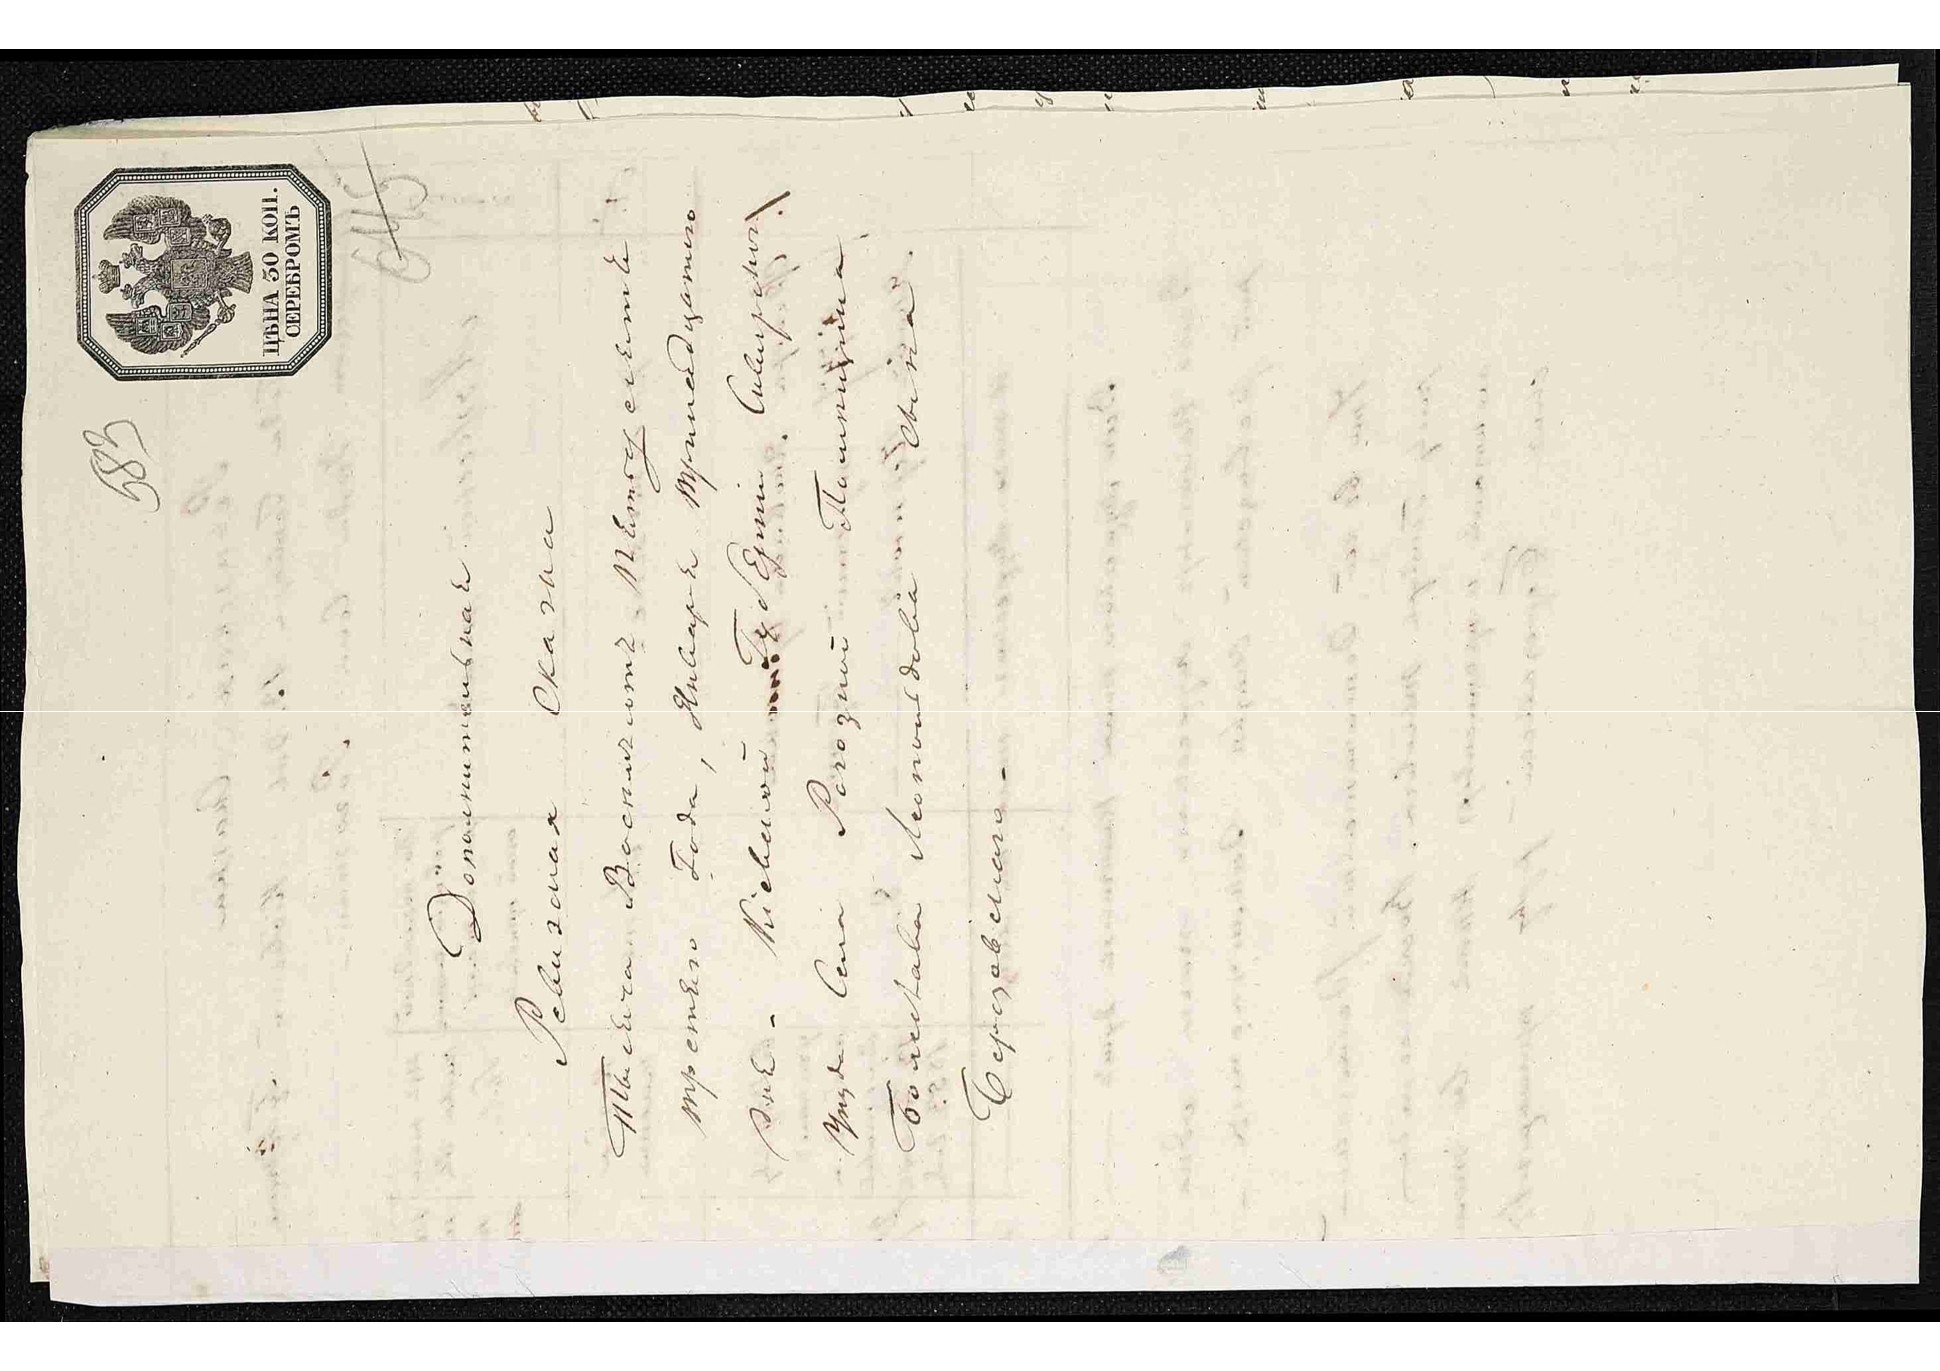 ЦѢНА 30 КОП.
СЕРЕБРОМЪ
583
645
Дополнительная
Ревизская Сказка
Тысяча Восемьсотъ Пятьдесятъ
третьяго Года, Января тринадцатаго
дня - Кіевской Губерніи Сквирскаго
уезда Села Рогозной Помещика
Болеслава Леопольдова сына
Березовскаго -